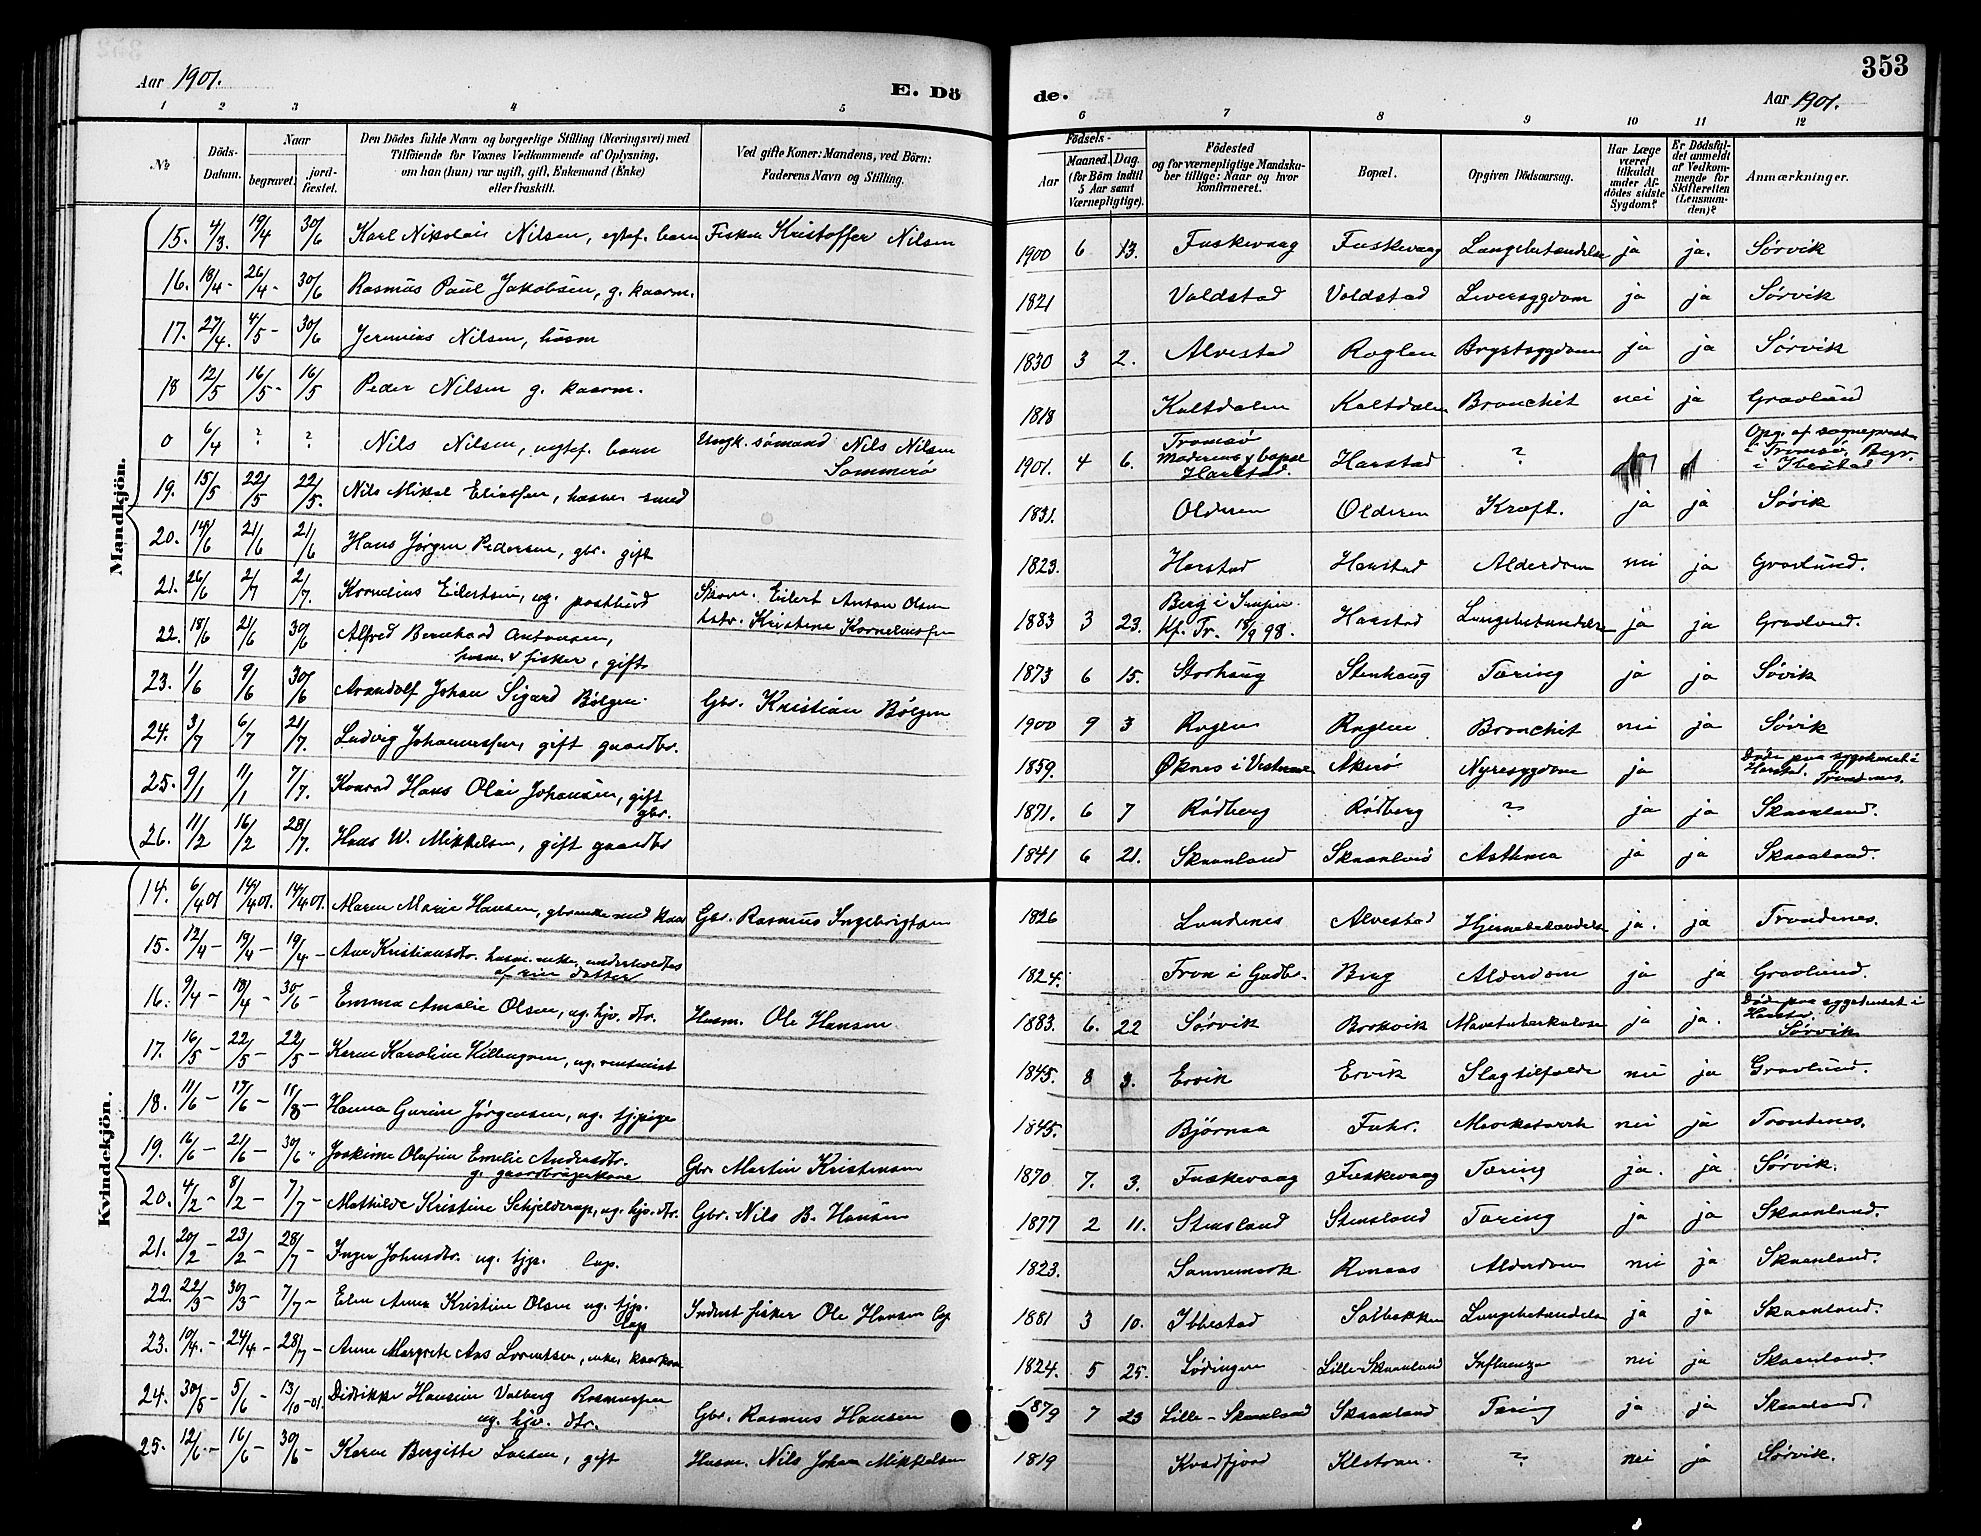 353
Aar 1901. E. Dö de. Aar 1901.
1 2 3 4 5 6 7 8 9 10 11 12
No Döds-Datum. Naar begravet. jordfæstet. Den Dödes fulde Navn og borgerlige Stilling (Næringsvei) med Tilföiende for Voxnes Vedkommende af Oplysning, om han (hun) var ugift, gift, Enkemand (Enke) eller fraskilt. Ved gifte Koner: Mandens, ved Börn: Faderens Navn og Stilling. Födsels- Aar Maaned. Dag. (for Börn indtil 5 Aar samt Værnepligtige). Födested og for værnepligtige Mandskaber tillige: Naar og hvor konfirmeret. Bopæl. Opgiven Dödsaarsag. Har Læge været tilkaldt under Afdödes sidste Sygdom? Er Dödsfaldet anmeldt af Vedkommende for Skifteretten (Lensmanden)? Anmærkninger.
Mandkjön.
15. 4/3. 19/4 30/6 Karl Nikolai Nilsen, egtef. barn Fisker Kristoffer Nilsen 1900 6 13. Fuskevaag Fuskevaag Lungebetændelse ja ja. Sørvik
16. 18/4- 26/4- 30/6 Rasmus Paul Jakobsen, g. kaarm. 1821 Voldstad Voldstad Leversygdom ja ja Sørvik
17. 27/4. 4/5- 30/6 Jeremias Nilsen, husm 1830 3 2. Alvestad Roglen Brystsygdom ja ja Sørvik
18 12/5 16/5- 16/5 Peder Nilsen g. kaarm. 1818 Kaltdalen Kaltdalen Bronchit nei ja Gravlund
0 6/4 ? ? Nils Nilsen, uegtef. barn Ungk. sømand Nils Nilsen Sommerø 1901. 4 6. Tromsø Moderens bopæl Harstad. Harstad ? Opg. af sogneprest i Tromsø, Begr. i Ibestad
19. 15/5 22/5 22/5. Nils Mikal Eliassen, husm. smed 1831. Olderen Olderen Kræft. ja ja Sørvik
20. 14/6 21/6 21/6 Hans Jørgen Pedersen, gbr. gift 1823. Harstad Harstad Alderdom nei ja Gravlund.
21. 26/6 2/7 2/7. Kornelius Eilertsen, ug. postbud Skom. Eilert Anton Olsen Kristine Korneliussen 1883 3 23. Berg i Senjen Kf. Tr. 18/9 98. Harstad Lungebetændelse ja ja Gravlund.
22. 18/6 21/6 30/6 Alfred Bernhard Antonsen, husm. & fisker, gift 1873 6 15. Storhaug Stenhaug Tæring ja ja Søvik
23. 1/6 9/6 30/6 Arandolf Johan Sigard Bølgen. Gbr. Kristian Bølgen 1900 9 3 Roglen Roglen Bronchit nei ja Søvik
24. 3/7 6/7 21/7. Ludvig Johannessen, gift gaardbr. 1859. Øknes i Vesteraalen Akerø Nyresygdom ja Døde paa sygehuset i Harstad. Trondenes.
25. 9/1 11/1 7/7. Konrad Hans Olai Johansen, gift gbr. 1871. 6 7 Rødberg Rødberg ? ja ja Skaanland.
26. 11/2 16/2 28/7. Hans W. Mikkelsen, gift gaardbr 1841 6 21. Skaanland Skaanland Asthma ja ja Skaanland.
Kvindekjön.
14. 6/4 01 14/4 01. 14/4 01. Maren Marie Hansen, gbrenke med kaar Gbr. Rasmus Ingebrigtsen 1826 Lundenes Alvestad Hjernebetændelse ja. ja Trondenes.
15. 12/4- 19/4- 19/4- Ane Kristiansdtr. husm. enke, underholdtes af sin datter 1824. Fron i Gudbr. Berg Alderdom ja ja Gravlund.
16. 9/4- 18/4- 30/6- Emma Amalie Olsen, ug. hjv. dtr. Husm. Ole Hansen 1883. 6. 22 Sørvik Brokvik Mavetuberkulose ja ja. Døde paa sygehuset i Harstad. Sørvik
17. 16/5- 22/5- 22/5- Karen Karoline Killengreen, ug. rentenist 1845. 8 3. Ervik Ervik Slagtilfælde nei ja Gravlund.
18. 11/6- 17/6- 11/8- Hanna Gurine Jørgensen, ug. tj.pige 1845. Bjørnaa Fuhr. nei ja Trondenes.
19. 16/6- 21/6- 30/6" Joakime Olufine Emelie Andersdtr. g. gaardbrugerkone Gbr Martin Kristensen 1870 7. 3. Fuskevaag Fuskevaag Tæring ja. ja. Sørvik.
20. 4/2- 8/2- 7/7- Mathilde Kristine Schjelderup, ug. hjv. dtr. Gbr. Nils B. Hansen 1877 2 11. Stensland Stensland Tæring ja ja Skaanland.
21. 20/2- 23/2- 28/7- Inger Johnsdtr. ug. tjp. lap. 1823. Sannemark Renaas Alderdom nei ja Skaanland.
22. 22/3- 30/3- 7/7- Elen Anna Kristine Olsen ug. tjp. lap Inderst fisker Ole Hansen lap 1881 3 10. Ibbestad Solbakken Lungebetændelse ja ja Skaanland.
23. 10/4.- 24/4- 28/7- Anne Margrete Aas Lorentsen, enke, kaarkone 1824. 5 25. Lødingen Lille-Skaanland Influenza nei ja Skaanland.
24. 30/5- 5/6- 13/10-01. Didrikke Hansine Valberg Rasmussen ug. hjv. dtr. Gbr. Rasmus Hansen 1879 7 23 Lille-Skaanland Skaanland Tæring ja ja Skaanland.
25. 12/6.- 16/6- 30/6- Karen Bergitte Larsen, gift Husm. Nils Johan Mikkelsen 1819 Kvædfjord ? nei ja Sørvik.